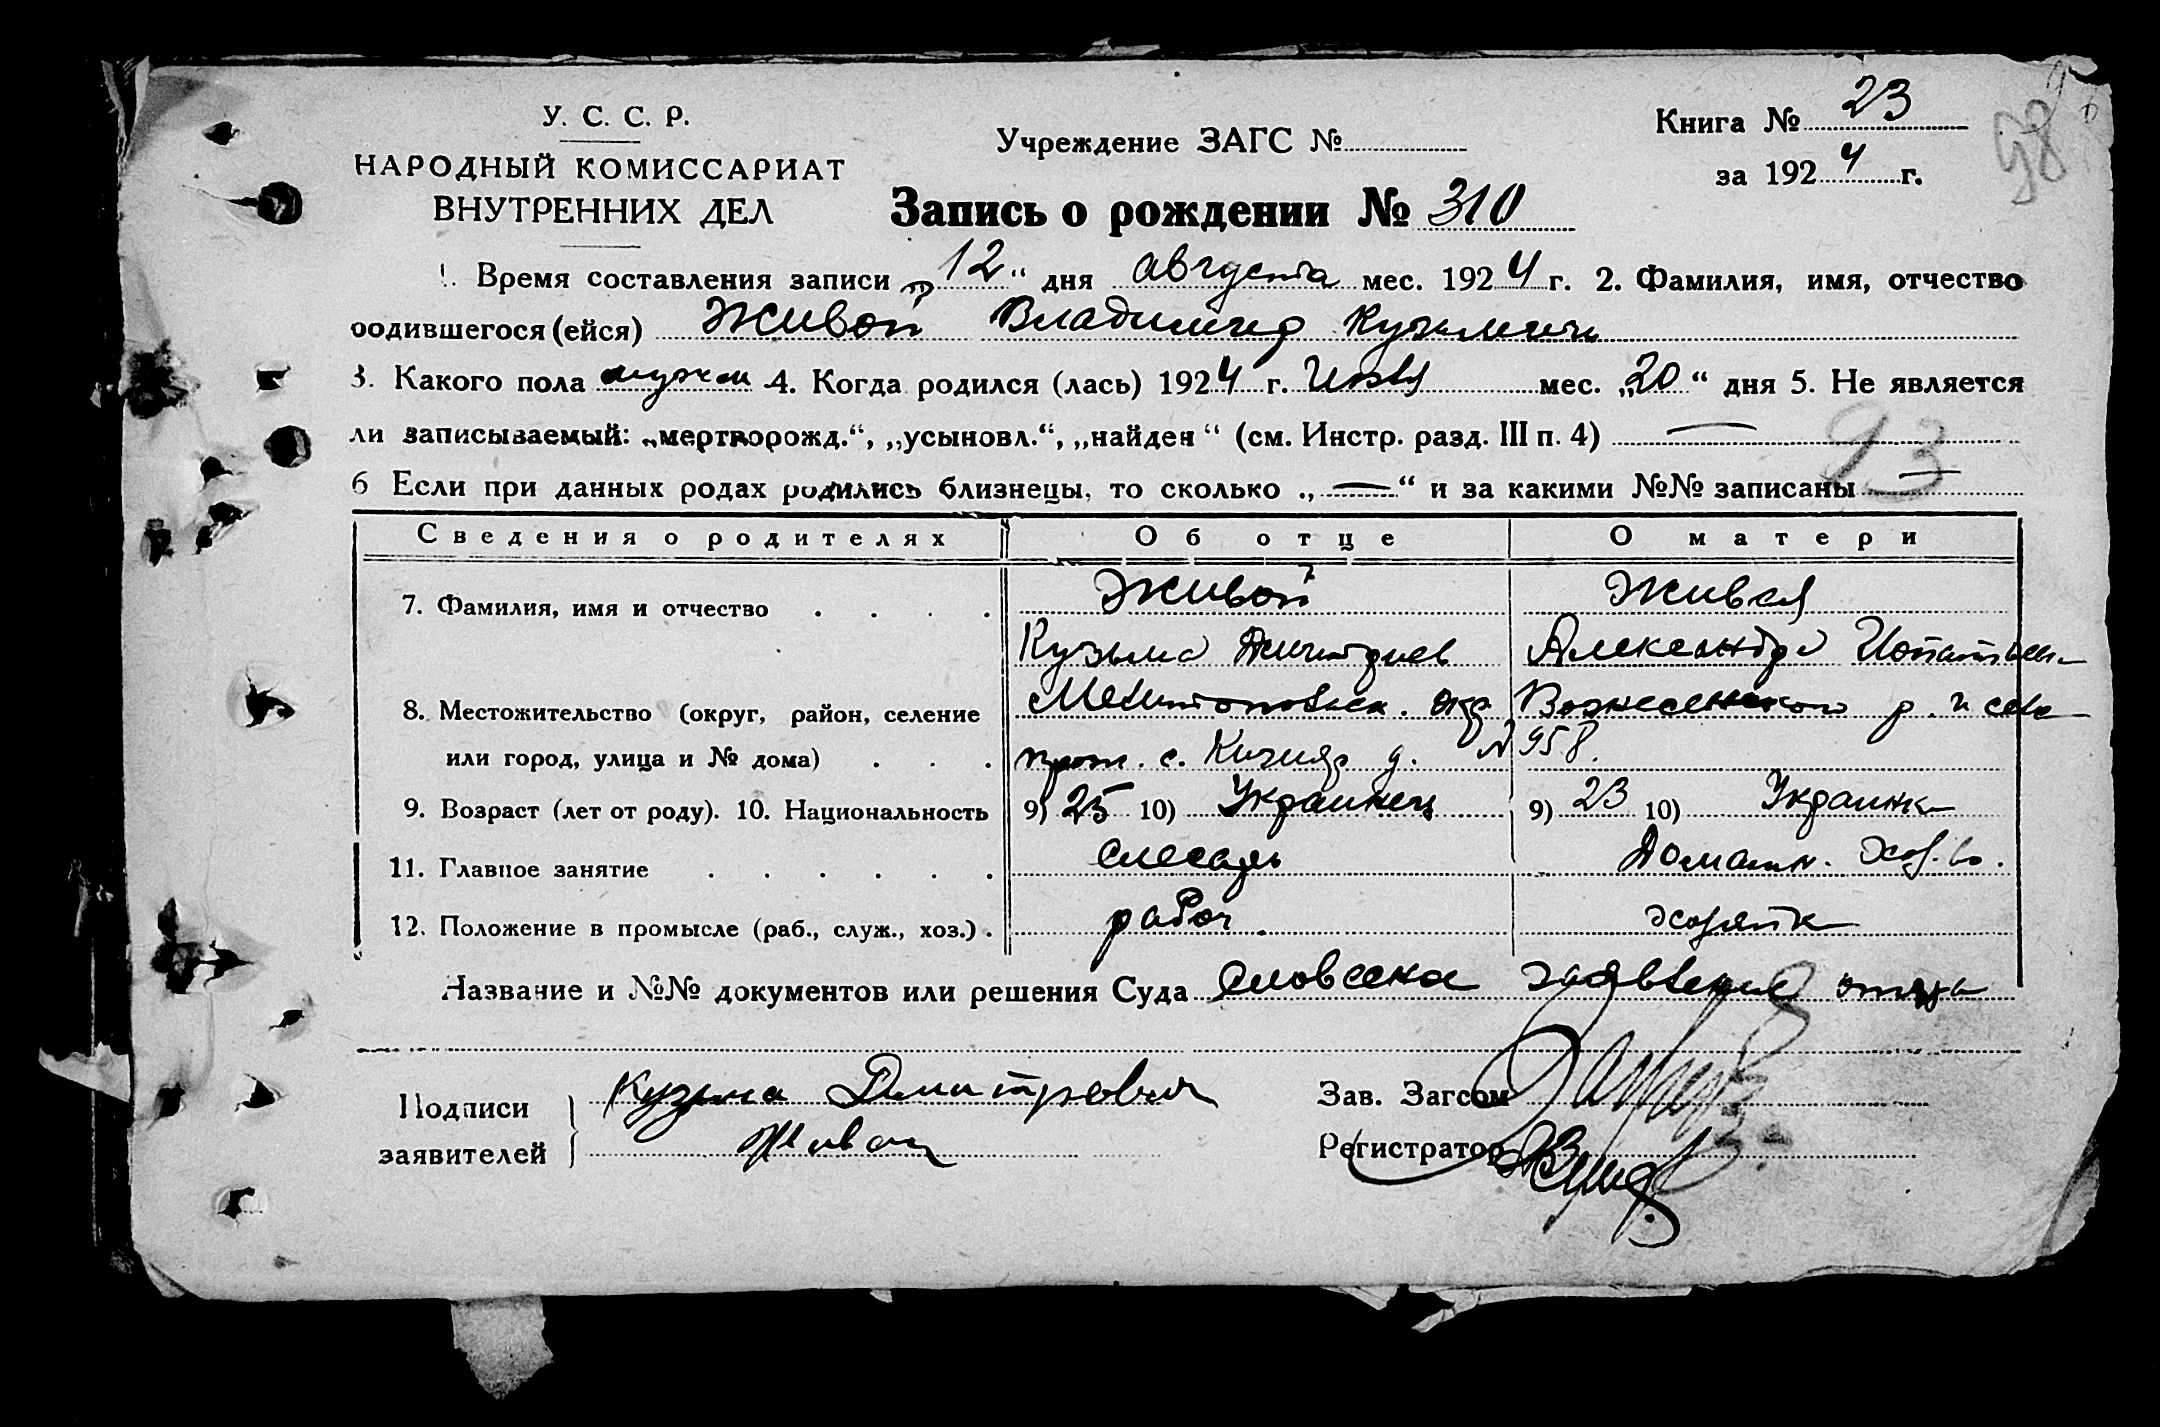 У. С. С. Р.
НАРОДНЫЙ КОМИССАРИАТ
ВНУТРЕННИХ ДЕЛ
Учреждение ЗАГС №
Книга № 23
за 1924 г.
98
Запись о рождении № 310
1. Время составления записи „12“ дня августа мес. 1924 г. 2. Фамилия, имя, отчество
родившегося (ейся) Живой Владимир Кузьмич
3. Какого пола мужск 4. Когда родился (лась) 1924 г. Июля мес. „20“ дня 5. Не является
ли записываемый: „мертворожд.“, „усыновл.“, „найден“ (см. Инстр. разд. III п. 4) —
93
6 Если при данных родах родились близнецы, то сколько „—“ и за какими №№ записаны —
Сведения о родителях Об отце О матери
7. Фамилия, имя и отчество Живой Живая
Кузьма Дмитриев Александра
8. Местожительство (округ, район, селение Мелитопольск. окр Вознесенского р. и села
или город, улица и № дома) прож. с. Кизияр д. № 958.
9. Возраст (лет от роду). 10. Национальность 9) 25 10) Украинец 9) 23 10) Украинк
11. Главное занятие слесарь Домашн. хоз.во.
12. Положение в промысле (раб., служ., хоз.) рабоч. хозяйк
Название и №№ документов или решения Суда словесна заявление отца
Подписи
заявителей
Кузьма Дмитрович
Живой
Зав. Загсом
Регистратор